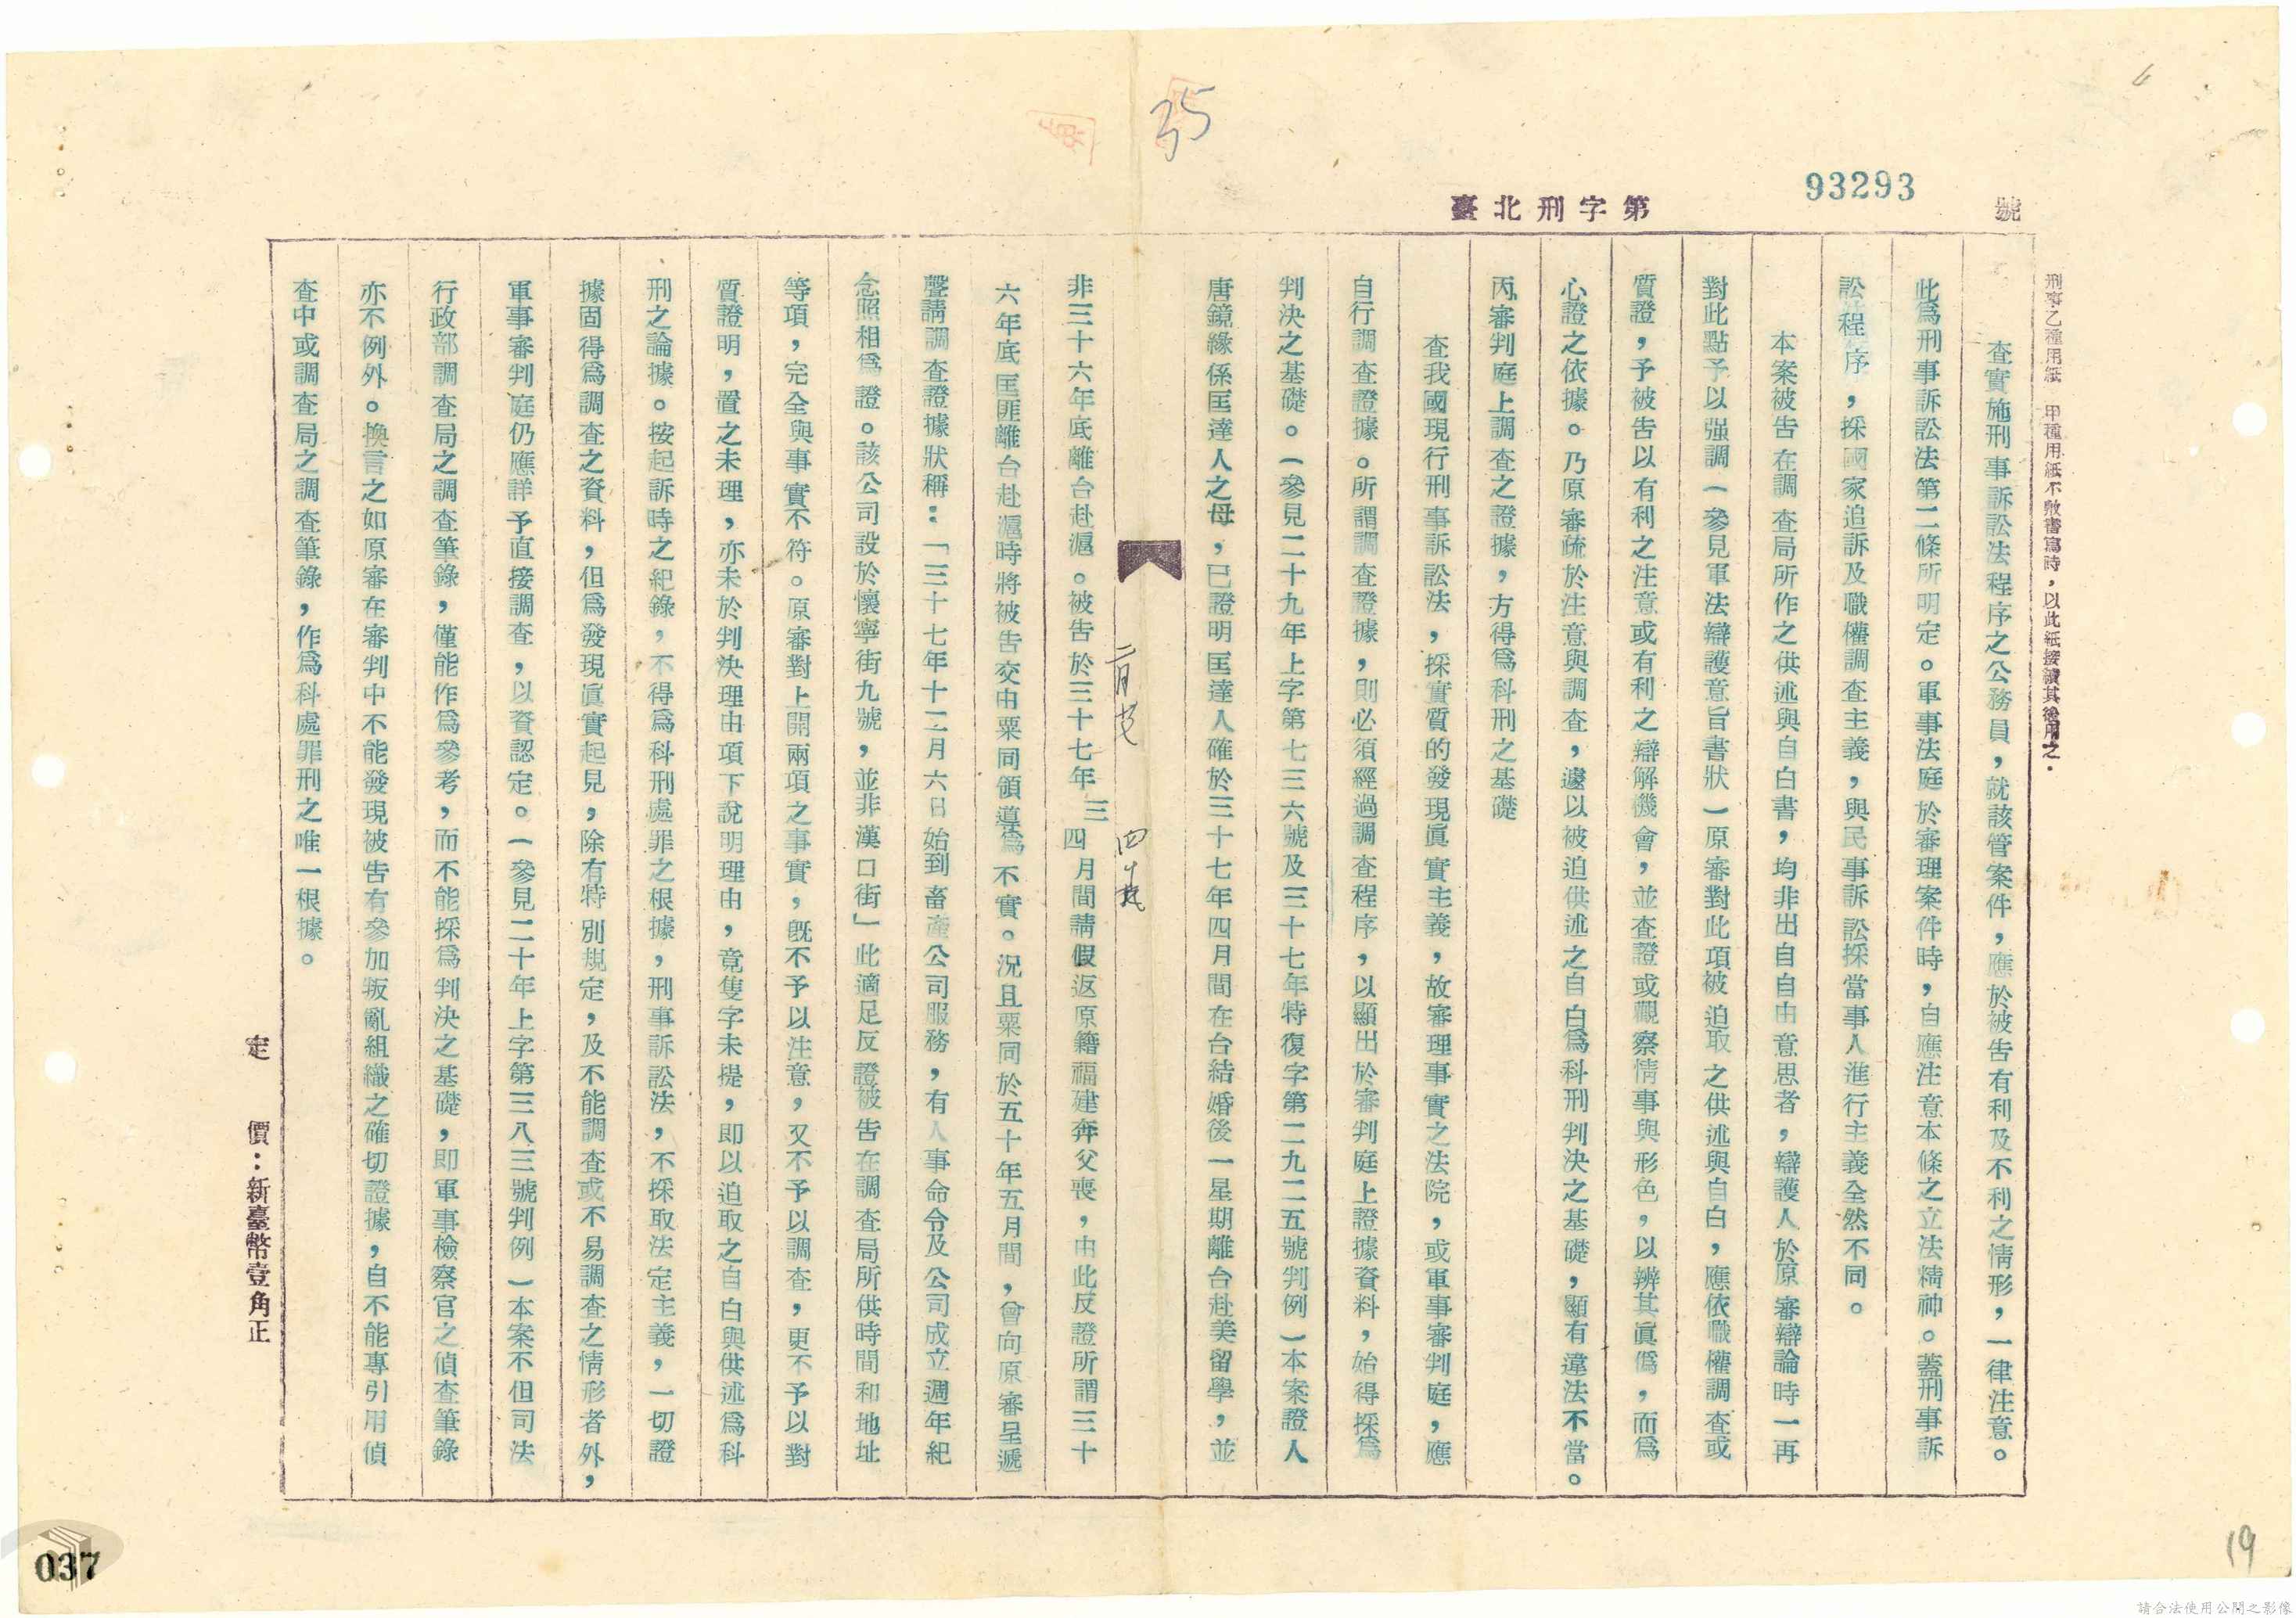 35
93293
臺北刑字第
號
刑事乙種用紙　甲種用紙不敷書寫時，以此紙接續其後用之．
查實施刑事訴訟法程序之公務員，就該管案件，應於被告有利及不利之情形，一律注意。
此為刑事訴訟法第二條所明定。軍事法庭於審理案件時，自應注意本條之立法精神。蓋刑事訴
訟程序，採國家追訴及職權調查主義，與民事訴訟採當事人進行主義全然不同。
本案被告在調查局所作之供述與自白書，均非出自自由意思者，辯護人於原審辯論時一再
對此點予以强調（參見軍法辯護意旨書狀）原審對此項被迫取之供述與自白，應依職權調查或
質證，予被告以有利之注意或有利之辯解機會，並查證或觀察情事與形色，以辨其眞僞，而為
心證之依據。乃原審疏於注意與調查，遽以被迫供述之自白為科刑判決之基礎，顯有違法不當。
丙、審判庭上調查之證據，方得為科刑之基礎
查我國現行刑事訴訟法，採實質的發現眞實主義，故審理事實之法院，或軍事審判庭，應
自行調查證據。所謂調查證據，則必須經過調查程序，以顯出於審判庭上證據資料，始得採為
判決之基礎。（參見二十九年上字第七三六號及三十七年特復字第二九二五號判例）本案證人
唐鏡緣係匡達人之母，已證明匡達人確於三十七年四月間在台結婚後一星期離台赴美留學，並
非三十六年底離台赴滬。被告於三十七年三四月間請假返原籍福建奔父喪，由此反證所謂三十
六年底匡罪離台赴滬時將被告交由粟同領導為不實。況且粟同於五十年五月間，曾向原審呈遞
聲請調查證據狀稱：「三十七年十二月六日始到畜產公司服務，有人事命令及公司成立週年紀
念照相為證。該公司設於懷寧街九號，並非漢口街」此適足反證被告在調查局所供時間和地址
等項，完全與事實不符。原審對上開兩項之事實，旣不予以注意，又不予以調查，更不予以對
質證明，置之未理，亦未於判決理由項下說明理由，竟隻字未提，即以迫取之自白與供述為科
刑之論據。按起訴時之紀錄，不得為科刑處罪之根據，刑事訴訟法，不採取法定主義，一切證
據固得為調查之資料，但為發現眞實起見，除有特別規定，及不能調查或不易調查之情形者外，
軍事審判庭仍應詳予直接調查，以資認定。（參見二十年上字第三八三號判例）本案不但司法
行政部調查局之調查筆錄，僅能作為參考，而不能採為判決之基礎，即軍事檢察官之偵查筆錄
亦不例外。換言之如原審在審判中不能發現被告有參加叛亂組織之確切證據，自不能專引用偵
查中或調查局之調查筆錄，作為科處罪刑之唯一根據。
定　價：新臺幣壹角正
037
19
請合法使用公開之影像